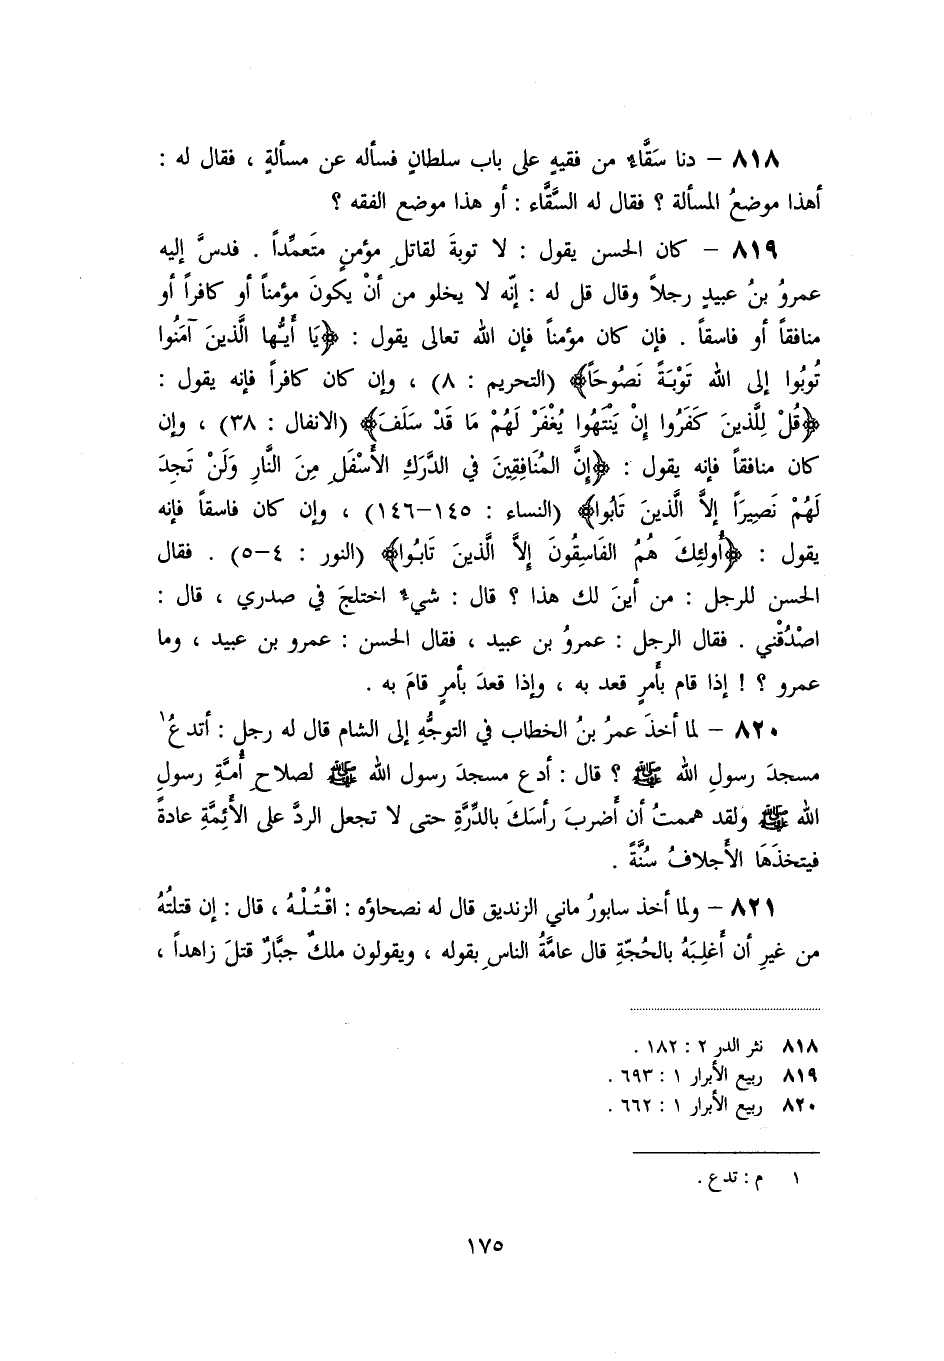 ٨١٨ – دنا سَقَّاءٌ من فقيهٍ على باب سلطانٍ فسأله عن مسألةٍ ، فقال له :
أهذا موضعُ المسألة ؟ فقال له السَّقَّاء : أو هذا موضع الفقه ؟
٨١٩ – كان الحسن يقول : لا توبةَ لقاتلِ مؤمنٍ متَعمِّداً . فدسَّ إليه
عمرو بنُ عبيدٍ رجلاً وقال قل له : إنّه لا يخلو من أنْ يكونَ مؤمناً أو كافراً أو
منافقاً أو فاسقاً . فإن كان مؤمناً فإن الله تعالى يقول : ﴿يَا أَيُّها الَّذينَ آمَنُوا
تُوبُوا إلى الله تَوْبَةً نَصُوحَاً﴾ (التحريم : ٨) ، وإن كان كافراً فإنه يقول :
﴿قُلْ لِلَّذينَ كَفَرُوا إنْ يَنْتَهُوا يُغْفَرْ لَهُمْ مَا قَدْ سَلَفَ﴾ (الانفال : ٣٨) ، وإن
كان منافقاً فإنه يقول : ﴿إنَّ المُنَافِقِينَ في الدَّرَكِ الأَسْفَلِ مِنَ النَّارِ وَلَنْ تَجِدَ
لَهُمْ نَصِيرَاً إلاَّ الَّذينَ تَابُوا﴾ (النساء : ١٤٥–١٤٦) ، وإن كان فاسقاً فإنه
يقول : ﴿أُولئِكَ هُمُ الفَاسِقُونَ إلاَّ الَّذينَ تَابُوا﴾ (النور : ٤–٥) . فقال
الحسن للرجل : من أينَ لك هذا ؟ قال : شيءٌ اختلجَ في صدري ، قال :
اصْدُقْني . فقال الرجل : عمروُ بن عبيد ، فقال الحسن : عمرو بن عبيد ، وما
عمرو ؟ ! إذا قام بأَمرٍ قعد به ، وإذا قعدَ بأمرٍ قامَ به .
٨٢٠ – لما أخذَ عمرُ بنُ الخطاب في التوجُّهِ إلى الشام قال له رجل : أتدعُ١
مسجدَ رسولِ الله ﷺ ؟ قال : أدع مسجدَ رسول الله ﷺ لصلاحِ أُمَّةِ رسولِ
الله ﷺ ولقد هممتُ أن أَضربَ رأسَكَ بالدِّرَّةِ حتى لا تجعل الردَّ على الأَئِمَّةِ عادةً
فيتخذَهَا الأَجلافُ سُنَّةً .
٨٢١ – ولما أخذ سابورُ ماني الزنديق قال له نصحاؤه : اقْتُلْهُ ، قال : إن قتلتُهُ
من غيرِ أن أَغلِبَهُ بالحُجّةِ قال عامَّةُ الناسِ بقوله ، ويقولون ملكٌ جبَّارٌ قتلَ زاهداً ،
٨١٨ نثر الدر ٢ : ١٨٢ .
٨١٩ ربيع الأبرار ١ : ٦٩٣ .
٨٢٠ ربيع الأبرار ١ : ٦٦٢ .
١ م : تدع .
١٧٥